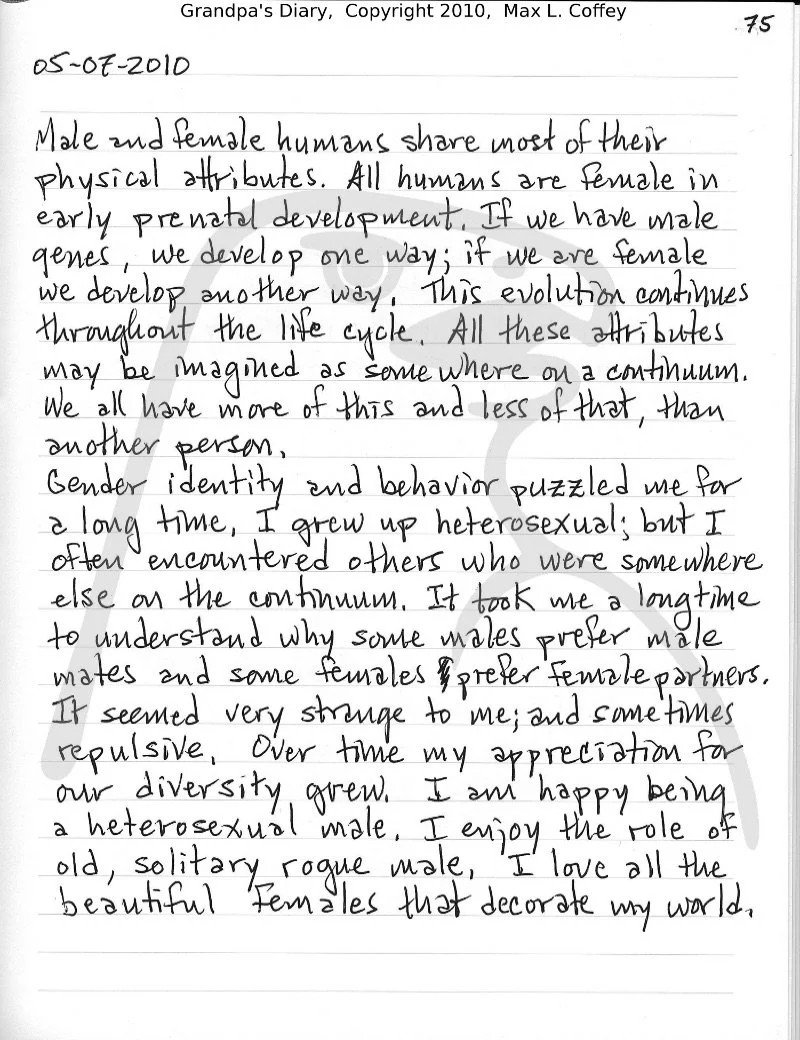 Grandpa's Diary, Copyright 2010, Max L. Coffey
75
05-07-2010
Male and female humans share most of their
physical attributes. All humans are female in
early prenatal development. If we have male
genes, we develop one way; if we are female
we develop another way. This evolution continues
throughout the life cycle. All these attributes
may be imagined as somewhere on a continuum.
We all have more of this and less of that, than
another person.
Gender identity and behavior puzzled me for
a long time. I grew up heterosexual; but I
often encountered others who were somewhere
else on the continuum. It took me a longtime
to understand why some males prefer male
mates and some females prefer female partners.
It seemed very strange to me; and sometimes
repulsive. Over time my appreciation for
our diversity grew. I am happy being
a heterosexual male. I enjoy the role of
old, solitary rogue male. I love all the
beautiful females that decorate my world.